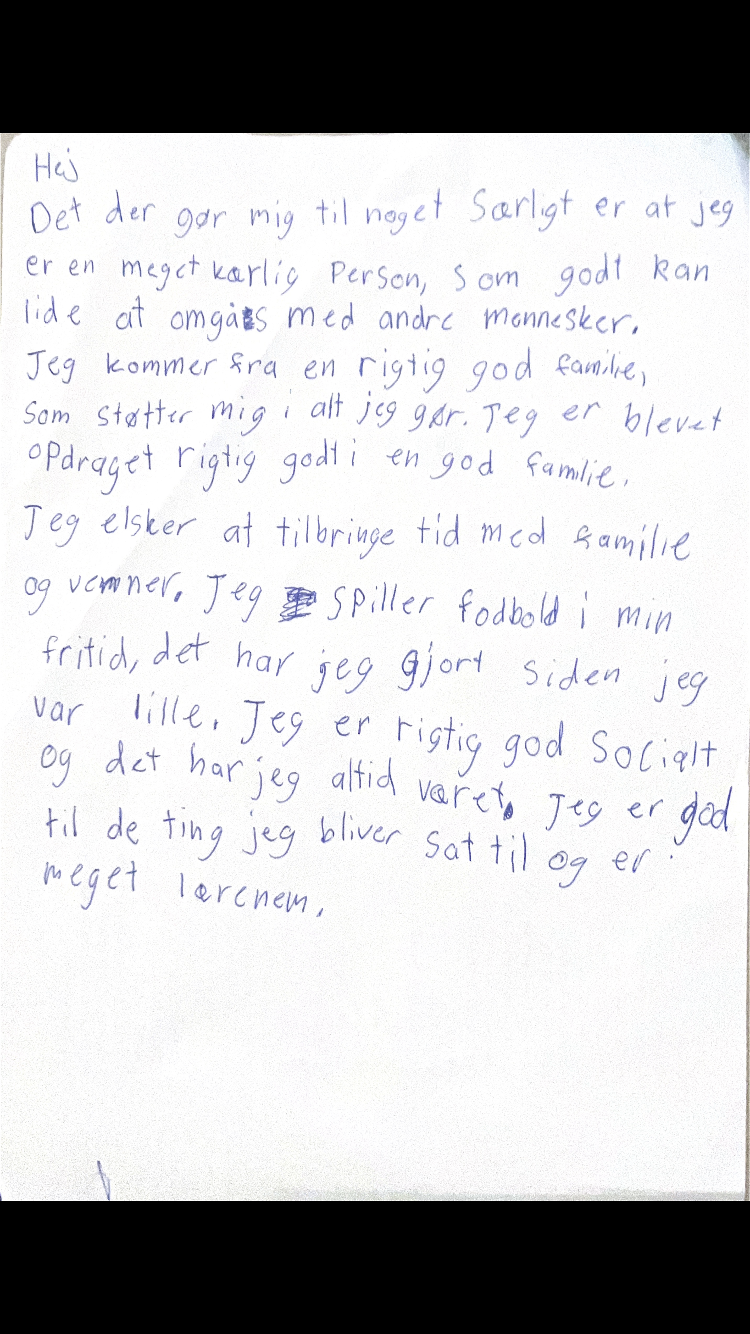 Hej
Det der gør mig til noget Særligt er at jeg
er en meget kærlig Person, som godt kan
lide at omgås med andre mennesker.
Jeg kommer fra en rigtig god familie,
Som støtter mig i alt jeg gør. Jeg er blevet
opdraget rigtig godt i en god familie.
Jeg elsker at tilbringe tid med familie
og venner. Jeg spiller fodbold i min
fritid, det har jeg gjort siden jeg
var lille. Jeg er rigtig god Socialt
og det har jeg altid været. Jeg er god
til de ting jeg bliver Sat til og er
meget lærenem.